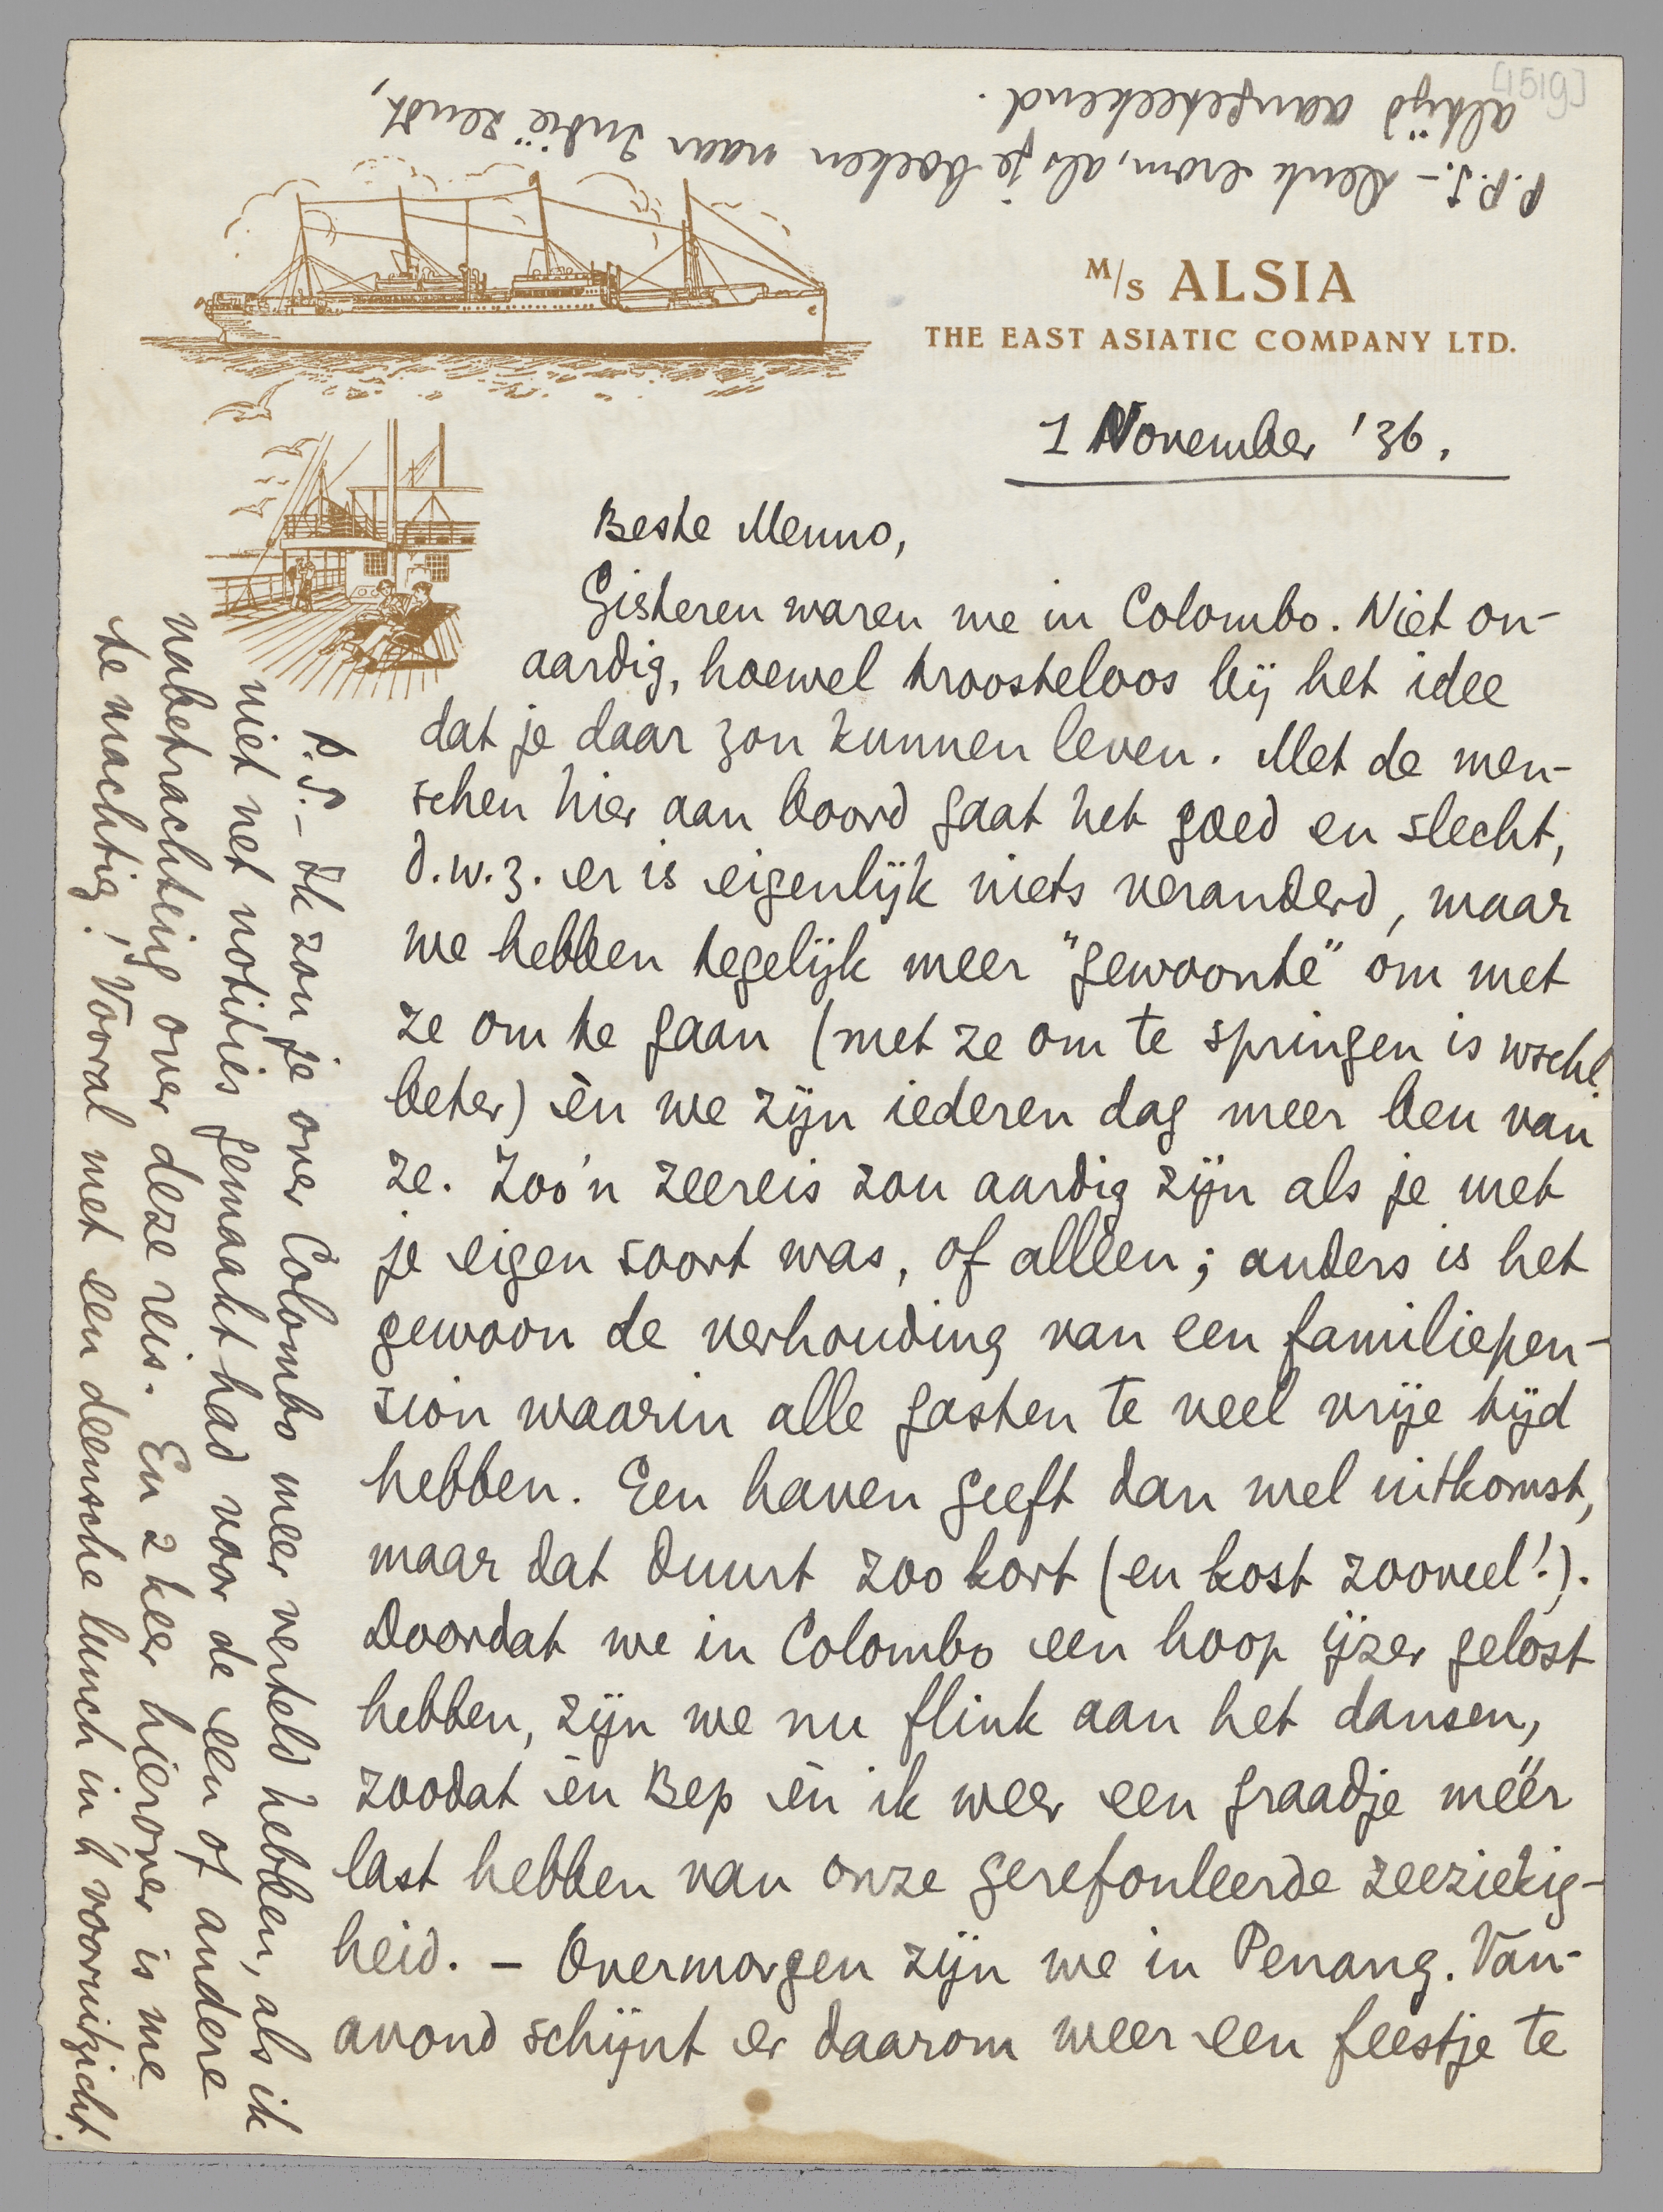 [1519]
P.P.S. – Denk erom, als je boeken naar Indië zendt,
altijd aangeteekend.
M/S ALSIA
THE EAST ASIATIC COMPANY LTD.
1 November '36.
Beste Menno,
Gisteren waren we in Colombo. Niet on-
aardig, hoewel troosteloos bij het idee
dat je daar zou kunnen leven. Met de men-
schen hier aan boord gaat het goed en slecht,
d.w.z. er is eigenlijk niets veranderd, maar
we hebben tegelijk meer "gewoonte" om met
ze om te gaan (met ze om te springen is wschl.
beter) èn we zijn iederen dag meer beu van
ze. Zoo'n zeereis zou aardig zijn als je met
je eigen soort was, of alléen; anders is het
gewoon de verhouding van een familiepen-
sion waarin alle gasten te veel vrije tijd
hebben. Een haven geeft dan wel uitkomst,
maar dat duurt zoo kort (en kost zooveel!).
Doordat we in Colombo een hoop ijzer gelost
hebben, zijn we nu flink aan het dansen,
zoodat èn Bep èn ik weer een graadje méér
last hebben van onze gerefouleerde zeeziekig-
heid. – Overmorgen zijn we in Penang. Van-
avond schijnt er daarom weer een feestje te
P.S. – Ik zou je over Colombo meer verteld hebben, als ik
niet net notities gemaakt had voor de een of andere
nabetrachting over deze reis. En 2 keer hierover is me
te machtig! Vooral met een deensche lunch in 't vooruitzicht.